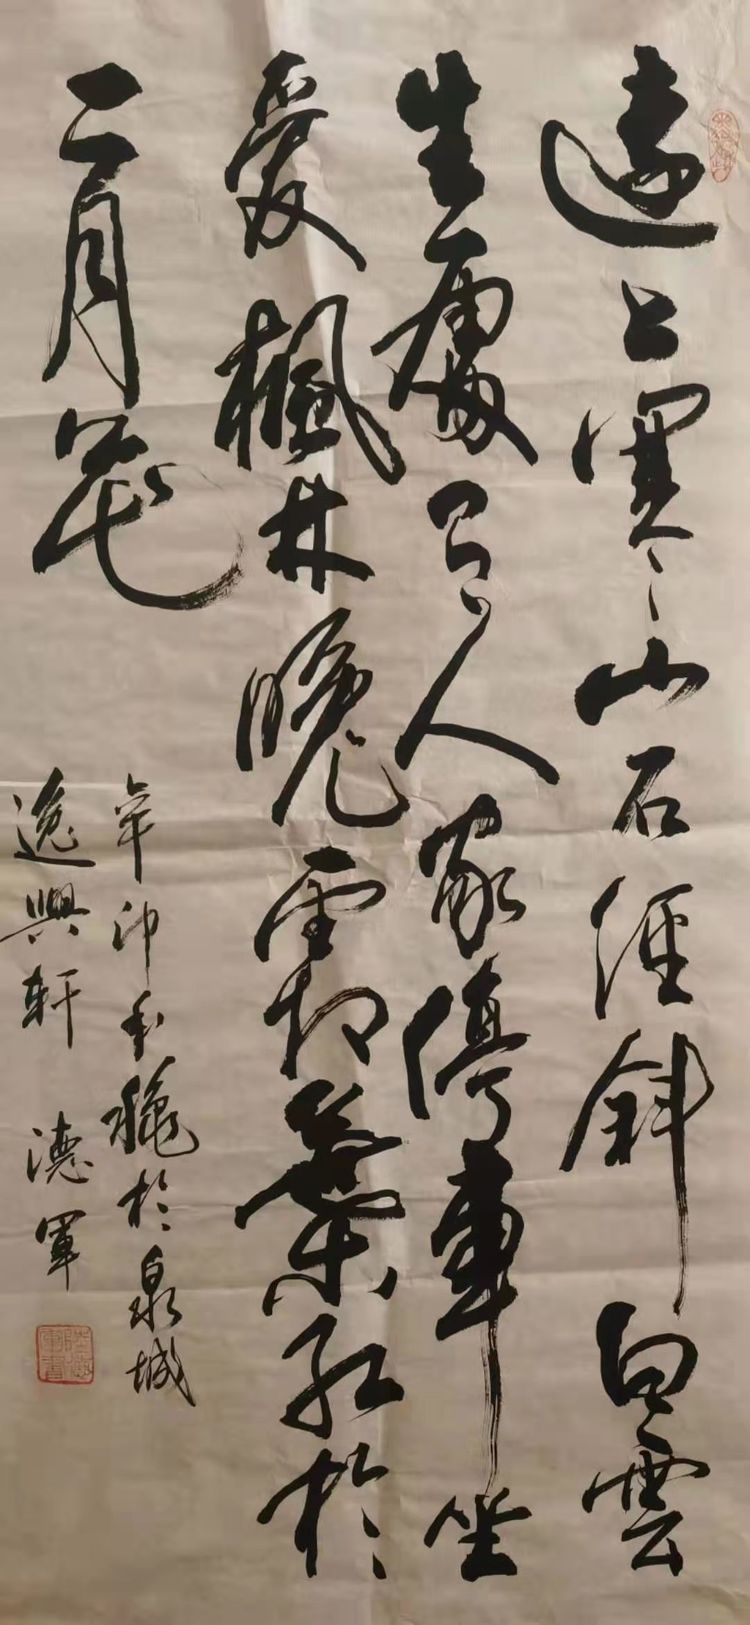 遠上寒山石徑斜白雲
生處有人家停車坐
愛楓林晚霜葉紅於
二月花
辛卯秊穐於泉城
逸興軒 德軍